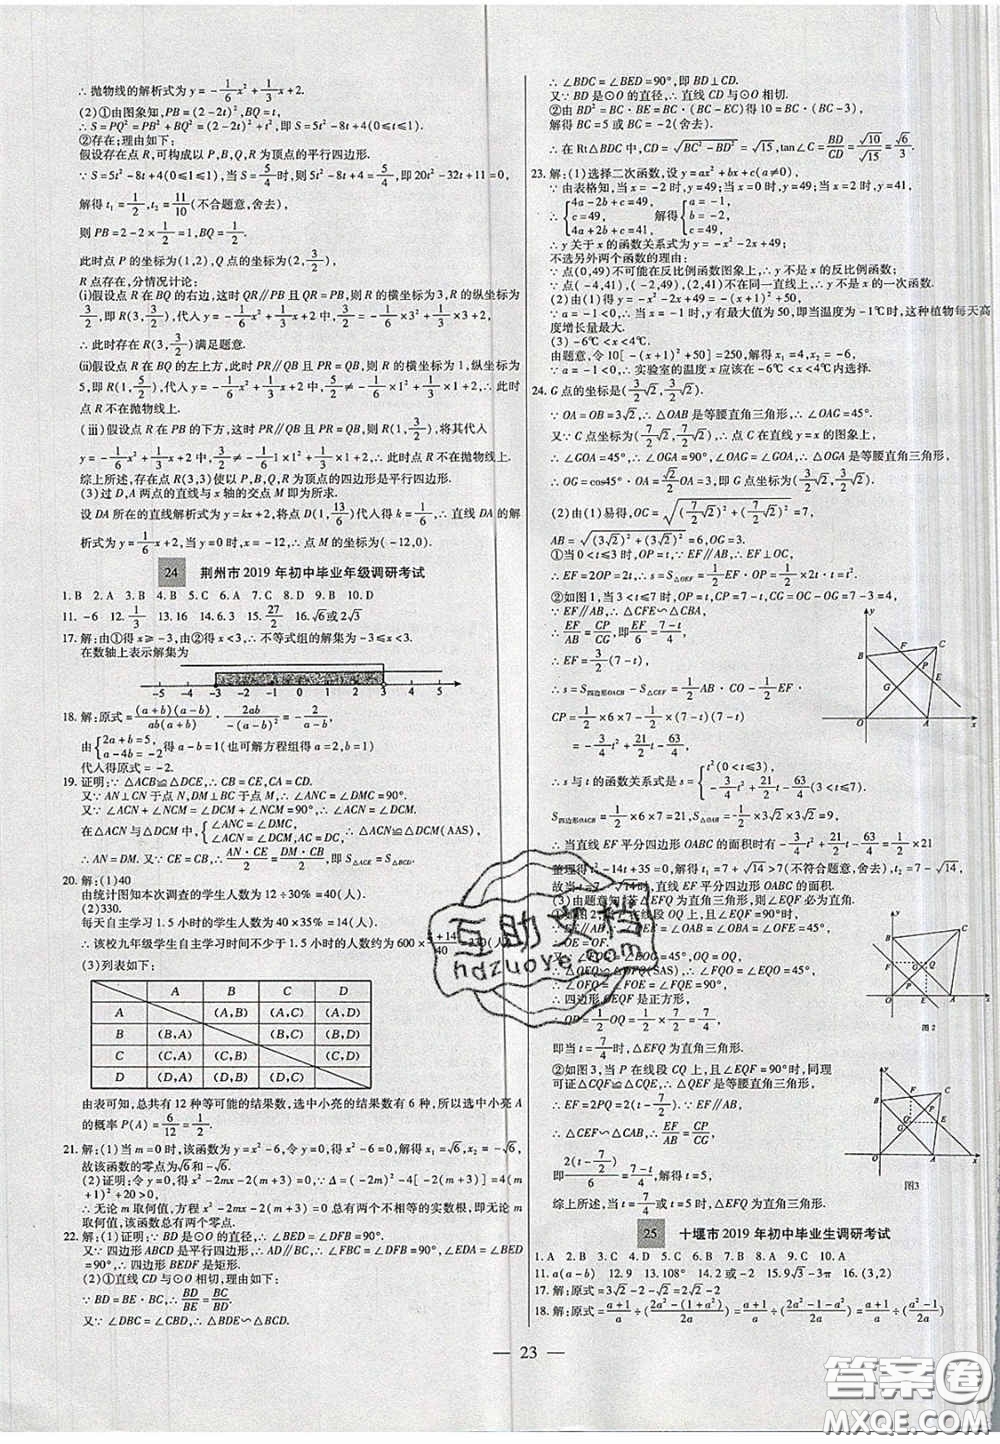 ∴ 抛物线的解析式为 y=-1/6x²+1/3x+2.
(2)①由图象知,PB=(2-2t)², BQ=t,
∴ S=PQ²=PB²+BQ²=(2-2t)²+t²,即 S=5t²-8t+4(0≤t≤1).
②存在;理由如下:
假设存在点 R,可构成以 P、B、R、Q 为顶点的平行四边形.
∵ S=5t²-8t+4(0≤t≤1),当 S=5/4时,则 5t²-8t+4=5/4,即 20t²-32t+11=0,
解得 t₁=1/2,t₂=11/10(不合题意,舍去),
则 PB=2-2×1/2=1,BQ=1/2.
此时点 P 的坐标为(1,2),Q 点的坐标为(2,3/2),
R 点存在,分情况讨论:
(ⅰ)假设点 R 在 BQ 的右边,这时 QR∥PB 且 QR=PB,则 R 的横坐标为 3,R 的纵坐标为
3/2,即 R(3,3/2),代入 y=-1/6x²+1/3x+2 中,-1/6×3²+1/3×3+2=3/2,
∴ 此时存在 R(3,3/2)满足题意.
(ⅱ)假设点 R 在 BQ 的左上方,这时 PR∥QB 且 PR=QB,则 R 的横坐标为 1,纵坐标为
5/2,即 R(1,5/2),代入 y=-1/6x²+1/3x+2 中,5/2≠-1/6×1²+1/3×1+2,∴ 此时
点 R 不在抛物线上.
(ⅲ)假设点 R 在 PB 的下方,这时 PR∥QB 且 PR=QB,则 R(1,3/2),将其代入
y=-1/6x²+1/3x+2 中,3/2≠-1/6×1²+1/3×1+2,∴ R 不在抛物线上.
综上所述,存在点 R(3,3)使以 P,B,R,Q 为顶点的四边形是平行四边形.
(3)过 D,A 两点的直线与 x 轴的交点 M 即为所求.
设 DA 所在的直线解析式为 y=kx+2,将点 D(1,13/6)代入得 k=1/6,∴ 直线 DA 的解
析式为 y=1/6x+2,当 y=0 时,x=-12,∴ 点 M 的坐标为(-12,0).
24 荆州市 2019 年初中毕业年级调研考试
1.B 2.A 3.B 4.B 5.C 6.B 7.C 8.D 9.B 10.D
11.-6 12.1/3 13.2/3 14.6.3 15.27/2 16.√6或2√3
17.解:由①得 x≥-3,由②得 x<3,∴ 不等式组的解集为-3≤x<3.
在数轴上表示解集为
-5 -4 -3 -2 -1 0 1 2 3 4 5
18.解:原式=(a+b)(a-b)/ab(a+b)·2ab/-(a-b)²=-2/(a-b),
由{2a+b=5, a-4b=-2}得 a-b=1(也可解方程组得 a=2,b=1)
代入得原式=-2.
19.证明:∵ △ACB≌△DCE,∴ CB=CE,CA=CD.
又∵ AN⊥CN 于点 N,DM⊥BC 于点 M,∴ ∠ANC=∠DMC=90°.
又∵ ∠ACN+∠NCM=∠DCM+∠NCM=90°,∴ ∠ACN=∠DCM,
在△ACN 与△DCM 中,{∠ANC=∠DMC, ∠ACN=∠DCM, AC=DC}∴ △ACN≌△DCM(AAS),
∴ AN=DM.又∵ BC=CE,∴ AN·CE/2=DM·CB/2,即 S△ACE=S△BCD.
20.解:(1)40
由统计图知本次调查的学生人数为 12÷30%=40(人).
(2)330.
每天自主学习 1.5 小时的学生人数为 40×35%=14(人).
∴ 该校九年级学生自主学习时间不少于 1.5 小时的人数约为 600×
(3)列表如下:
A B C D
A (A,B) (A,C) (A,D)
B (B,A) (B,C) (B,D)
C (C,A) (C,B) (C,D)
D (D,A) (D,B) (D,C)
由表可知,总共有 12 种等可能的结果数,选中小亮的结果数有 6 种,所以选中小亮 A
的概率 P(A)=6/12=1/2.
21.解:(1)当 m=0 时,该函数为 y=x²-6,令 y=0,得 x²-6=0,解得 x₁=√6,x₂=-√6,
故该函数的零点为√6与-√6.
(2)证明:令 y=0,得 x²-2mx-2(m+3)=0,∵ Δ=(-2m)²-4[-2(m+3)]=4(m
+1)²+20>0,
∴ 无论 m 取何值,方程 x²-2mx-2(m+3)=0 总有两个不相等的实数根,即无论 m
取何值,该函数总有两个零点.
22.解:(1)证明:∵ BD 是⊙O 的直径,∴ ∠DEB=90°.
又∵ 四边形 ABCD 是平行四边形,∴ AD∥BC,∴ ∠FBC=∠DFB=90°,∠EDF=
90°,∴ 四边形 BEDF 是矩形.
(2)①直线 CD 与⊙O 相切,理由如下:
∵ BD²=BE·BC,∴ BD/BE=BC/BD,
又∵ ∠DBC=∠CBD,∴ △BDE∽△BCD.
∴ ∠BDC=∠BED=90°,即 BD⊥CD.
又∵ BD 是⊙O 的直径,∴ 直线 CD 与⊙O 相切.
②由 BD²=BC·BE=BC·(BC-EC)得 10=BC·(BC-3),
解得 BC=5 或 BC=-2(舍去).
∴ 在 Rt△BDC 中,CD=√(BC²-BD²)=√15,tan∠C=BD/CD=√10/√15=√6/3.
23.解:(1)选择二次函数,设 y=ax²+bx+c(a≠0),
∵ 由表格知,当 x=-2 时,y=49;当 x=0 时,y=49;当 x=2 时,y=41,
∴ {4a-2b+c=49, c=49, 4a+2b+c=41} 解得{a=-1, b=-2, c=49,
∴ y 关于 x 的函数关系式为 y=-x²-2x+49;
不选另外两个函数的理由:
∵ 点(0,49)不可能在反比例函数图象上,∴ y 不是 x 的反比例函数;
∵ 点(-4,41),(-2,49),(2,41)不在同一直线上,∴ y 不是 x 的一次函数.
(2)由(1)得 y=-x²-2x+49=-(x+1)²+50,
∵ a=-1<0,∴ 当 x=-1 时,y 有最大值为 50,即当温度为-1℃时,这种植物每天高
度增长量最大.
(3)-6℃<x<4℃
由题意,令 10[-(x+1)²+50]=250,解得 x₁=-6,
∵ a=-1<0,∴ 实验室的温度 x 应该在-6℃<x<4℃内选择.
24.G 点的坐标是(3/2√2,3/2√2).
∵ OA=OB=3√2,∴ △OAB 是等腰直角三角形,∴ ∠OAG=45°.
又∵ C 点坐标为(7/2√2,7/2√2),∴ 点 C 在直线 y=x 的图象上,
∴ ∠GOA=45°,∴ ∠OGA=90°,∴ ∠GOA=∠OAG,∴ △OGA 是等腰三角形,
∴ OG=cos45°·OA=√2/2OA=3,即 G 点坐标为(3/2√2,3/2√2).
(2)由(1)易得,OC=√((7/2√2)²+(7/2√2)²)=7,
AB=√((3√2)²+(3√2)²)=6,OG=3.
①当 0<t≤3 时,OP=t,∵ EF∥AB,∴ OP⊥EF,OP=t,
∴ EF=2t,∴ s=S△OEF=1/2EF·OP=1/2×2t·t=t²,
②如图 1,当 3<t≤7 时,OP=t,则 CP=7-t,
∵ EF∥AB,∴ △CFE∽△CBA,
∴ EF/AB=CP/CG,即EF/6=(7-t)/4,
∴ EF=3/2(7-t),
∴ s=S四边形OACB-S△CEF=1/2AB·CO-1/2EF·
CP=1/2×6×7-1/2×3/2(7-t)(7-t)
=-3/4t²+21/2t-63/4,
∴ s 与 t 的函数关系式是 s={t²(0<t≤3), -3/4t²+21/2t-63/4(3<t≤7).
S四边形OACB=1/2×6×7=21,S△OAB=1/2×3√2×3√2=9,
∴ 当直线 EF 平分四边形 OABC 的面积时有-3/4t²+21/2t-63/4=1/2×21
整理得 t²-14t+35=0,解得 t₁=7+√14>7(不符合题意,舍去),t₂=7-√14,
故当 t=7-√14时,直线 EF 平分四边形 OABC 的面积.
(3)由题意知,若△EFQ 为直角三角形,则∠EQF 必为直角.
①如图 2,当 P 在线段 OQ 上,且∠EQF=90°时,
∴ OE=OF.
∴ △OEQ≌△OFQ(SAS),∴ ∠FQO=∠EQO=45°,
∴ 四边形 OEQF 是正方形,
∴ OP=1/2OQ=1/2×7/2=7/4,
即当 t=7/4时,△EFQ 为直角三角形.
②如图 3,当 P 在线段 CQ 上,且∠EQF=90°时,同理
可证△CQF≌△CQE,∴ △EFQ 是等腰直角三角形.
∴ EF=2PQ=2(t-7/2),
∵ △CEF∽△CAB,∴ EF/AB=CP/CG,
即2(t-7/2)/6=(7-t)/4,解得 t=5,
综上所述,当 t=7/4或 t=5 时,△EFQ 为直角三角形.
图 2
图3
25 十堰市 2019 年初中毕业生调研考试
1.A 2.B 3.C 4.D 5.C 6.B 7.D 8.C 9.C 10.A
11.a(a-b) 12.9 13.108° 14.2 或-2 15.9√3-3π 16.(3,2)
17.解:原式=3√2-2-√2=2√2-2
18.解:原式=(a+1)/a÷(2a²-(1+a²)/2a)=(a+1)/a÷(2a²-1-a²/2a)=(a+1)/a÷(
— 23 —
互助文档
hdzuoye.com
答案圈
MXQE.COM